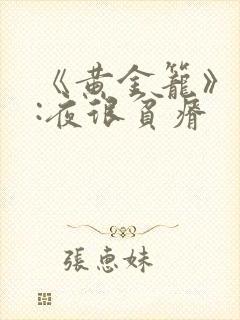 《黄金籠》
:夜很貧瘠
張惠妹